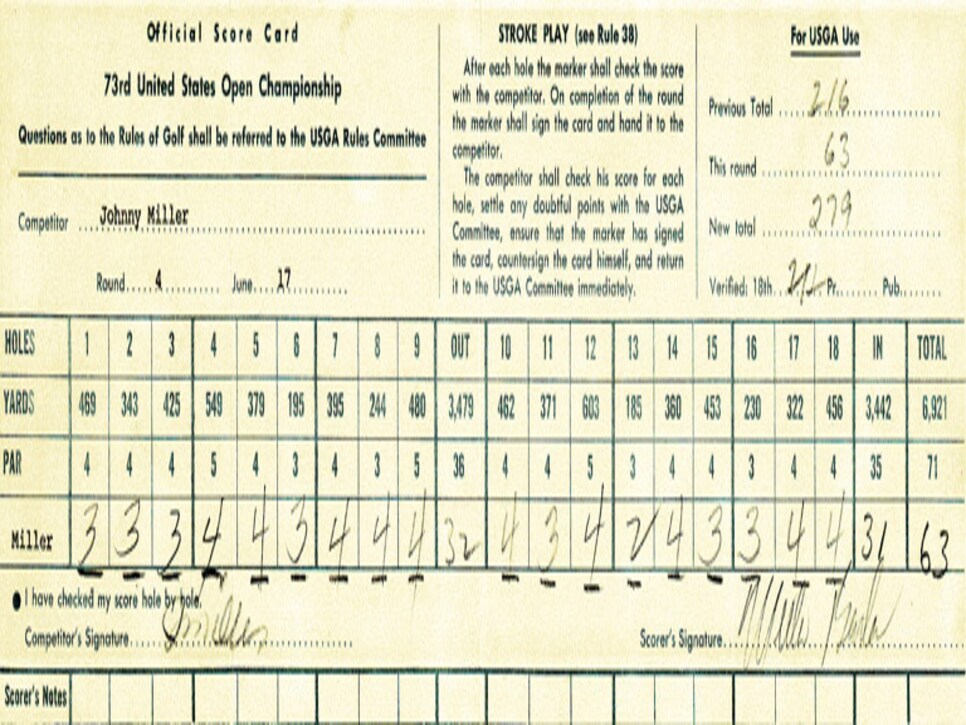 Official Score Card
73rd United States Open Championship
Questions as to the Rules of Golf shall be referred to the USGA Rules Committee
Competitor Johnny Miller
Round 4 June 17
STROKE PLAY (see Rule 38)
After each hole the marker shall check the score
with the competitor. On completion of the round
the marker shall sign the card and hand it to the
competitor.
The competitor shall check his score for each
hole, settle any doubtful points with the USGA
Committee, ensure that the marker has signed
the card, countersign the card himself, and return
it to the USGA Committee immediately.
For USGA Use
Previous Total 216
This round 63
New total 279
Verified: 18th Pr. Pub.
HOLES 1 2 3 4 5 6 7 8 9 OUT 10 11 12 13 14 15 16 17 18 IN TOTAL
YARDS 469 343 425 549 379 195 395 244 480 3,479 462 371 603 185 360 453 230 322 456 3,442 6,921
PAR 4 4 4 5 4 3 4 3 5 36 4 4 5 3 4 4 3 4 4 35 71
Miller 3 3 3 4 4 3 4 4 4 32 4 3 4 2 4 3 3 4 4 31 63
I have checked my score hole by hole.
Competitor's Signature J Miller
Scorer's Signature
Scorer's Notes